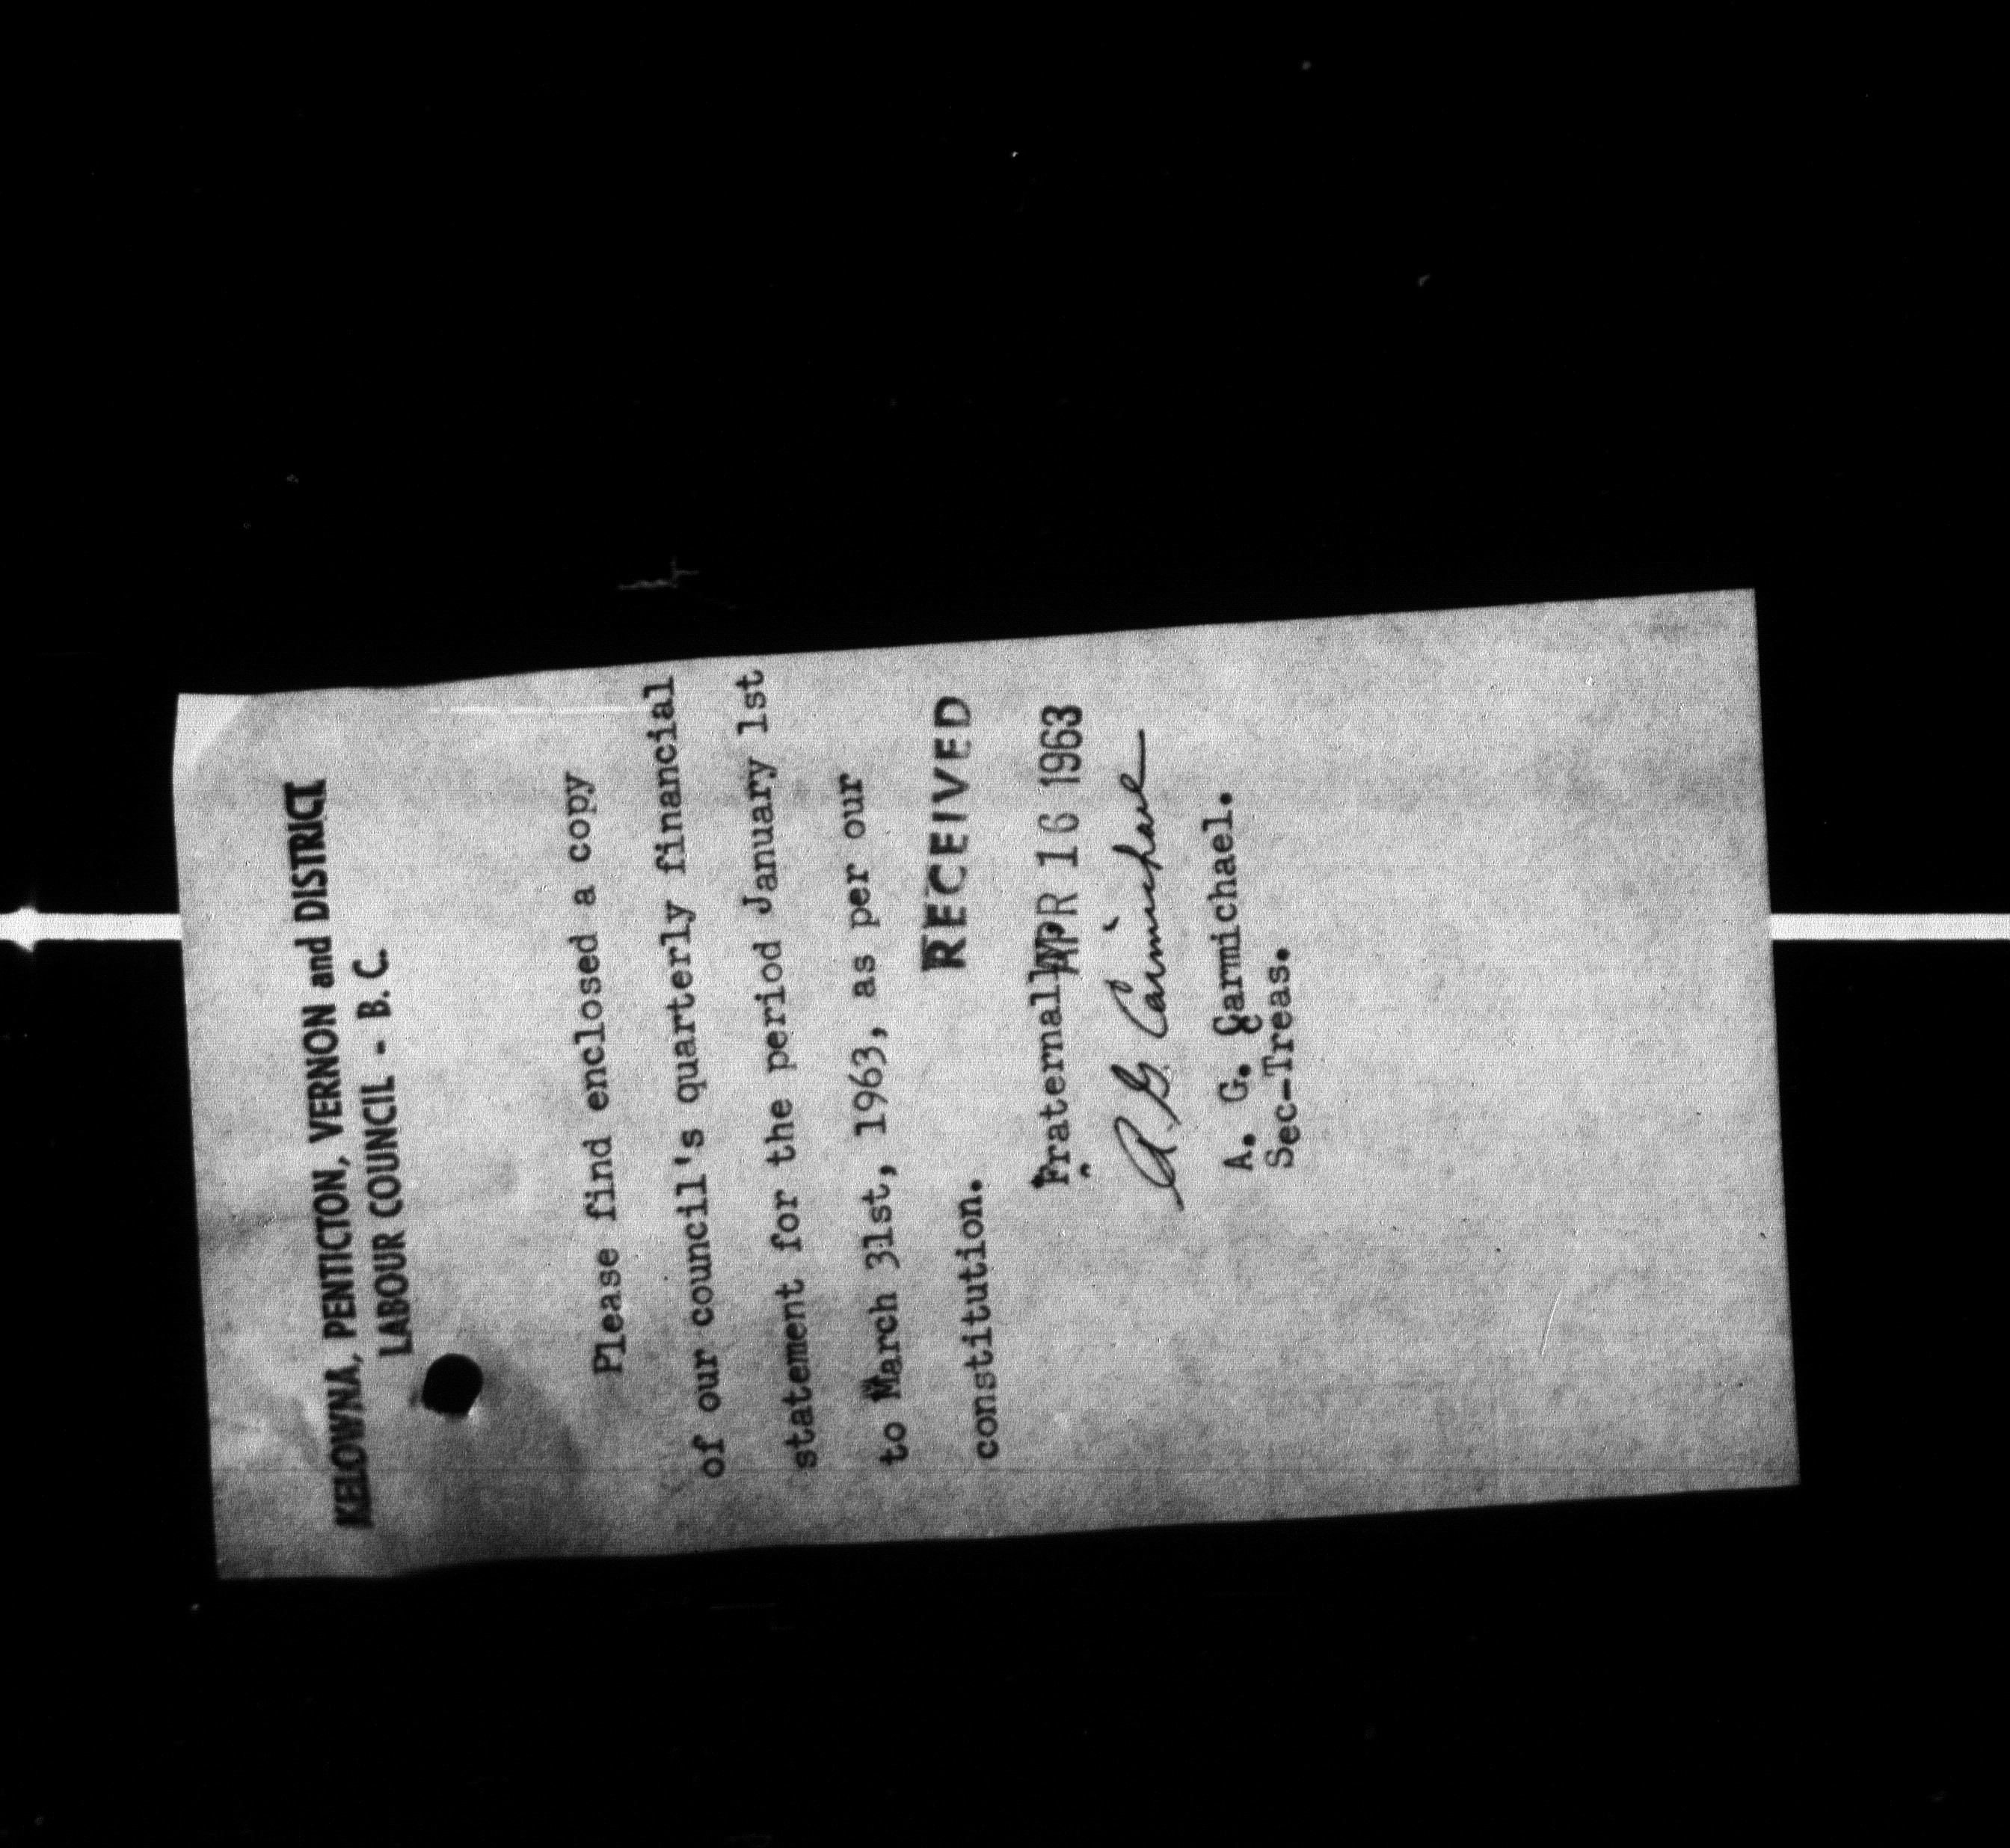 KELOWNA, PENTICTON, VERNON and DISTRICT
LABOUR COUNCIL - B. C.
Please find enclosed a copy
of our council's quarterly financial
statement for the period January 1st
to March 31st, 1963, as per our
constitution.
RECEIVED
APR 16 1963
Fraternally
A. G. Carmichael
A. G. Carmichael.
Sec-Treas.